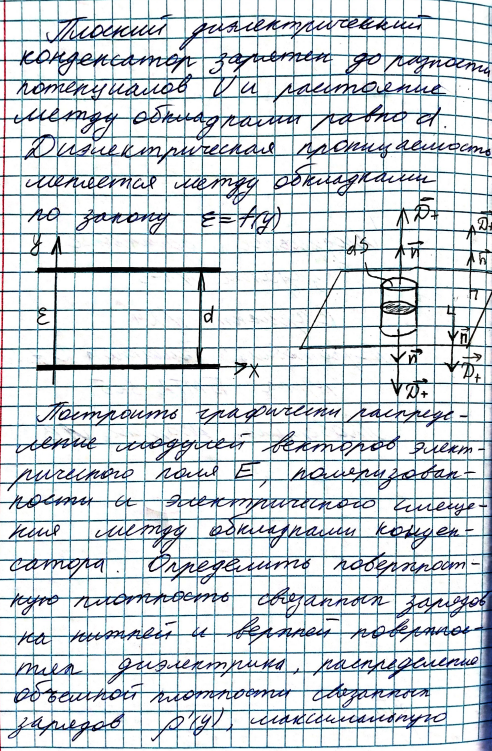 Плоский диэлектрический
конденсатор заряжен до разности
потенциалов U и расстояние
между обкладками равно d.
Диэлектрическая проницаемость
меняется между обкладками
по закону ε = f(y)
y
ε
d
x
dS
D₊
n
D₊
n
n
D₊
n
D₊
Построить графически распреде-
ление модулей векторов элект-
рического поля E, поляризован-
ности и электричного смеще-
ния между обкладками конден-
сатора. Определить поверхност-
ную плотность связанных зарядов
на нижней и верхней поверхнос-
тях диэлектрика, распределение
объемной плотности связанных
зарядов ρ'(y), максимальную